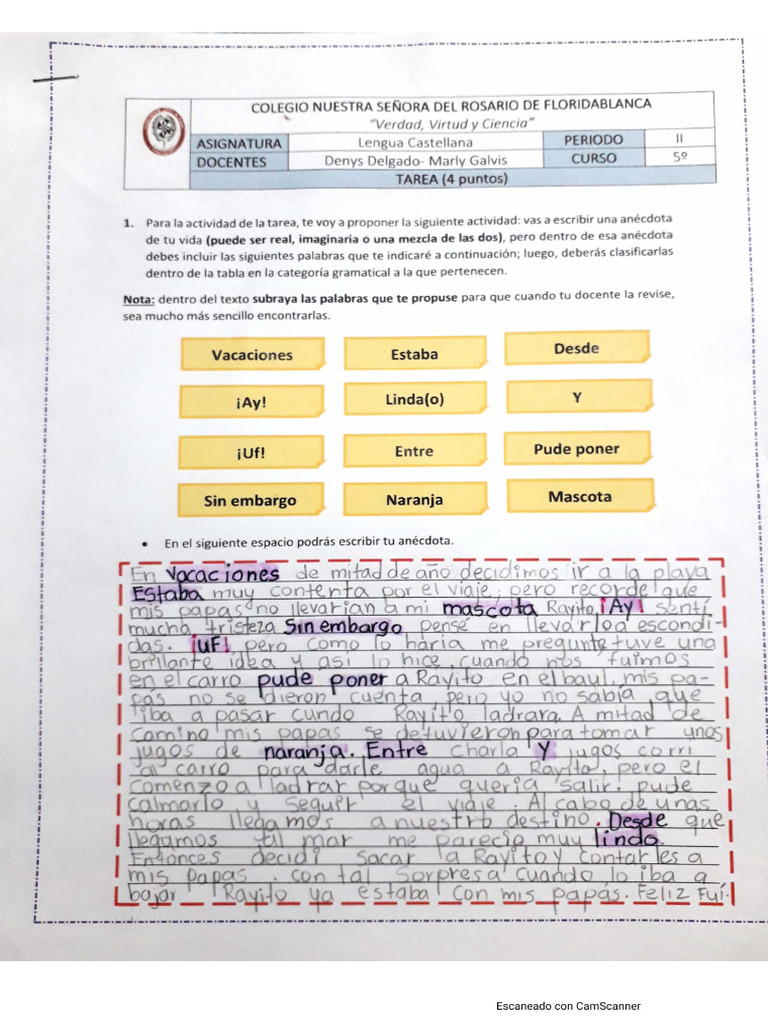 COLEGIO NUESTRA SEÑORA DEL ROSARIO DE FLORIDABLANCA
"Verdad, Virtud y Ciencia"
ASIGNATURA Lengua Castellana PERIODO II
DOCENTES Denys Delgado- Marly Galvis CURSO 5º
TAREA (4 puntos)
1. Para la actividad de la tarea, te voy a proponer la siguiente actividad: vas a escribir una anécdota
de tu vida (puede ser real, imaginaria o una mezcla de las dos), pero dentro de esa anécdota
debes incluir las siguientes palabras que te indicaré a continuación; luego, deberás clasificarlas
dentro de la tabla en la categoría gramatical a la que pertenecen.
Nota: dentro del texto subraya las palabras que te propuse para que cuando tu docente la revise,
sea mucho más sencillo encontrarlas.
Vacaciones Estaba Desde
¡Ay! Linda(o) Y
¡Uf! Entre Pude poner
Sin embargo Naranja Mascota
• En el siguiente espacio podrás escribir tu anécdota.
En vacaciones de mitad de año decidimos ir a la playa
Estaba muy contenta por el viaje, pero recorde que
mis papas no llevarian a mi mascota Rayito, ¡Ay! sentí
mucha tristeza Sin embargo pensé en llevarlo a escondi-
das. ¡uf! pero como lo haria me pregunte tuve una
brillante idea y asi lo hice, cuando nos fuimos
en el carro pude poner a Rayito en el baul, mis pa-
pás no se dieron cuenta pero yo no sabia que
iba a pasar cundo Rayito ladrara. A mitad de
camino mis papas se detuvieron para tomar unos
jugos de naranja. Entre charla Y jugos corri
al carro para darle agua a Rayito, pero el
comenzo a ladrar porque queria salir. pude
calmarlo y seguir el viaje. Al cabo de unas
horas llegamos a nuestro destino. Desde que
llegamos al mar me parecio muy lindo.
Entonces decidi sacar a Rayito y contarles a
mis papas. con tal sorpresa cuando lo iba a
bajar Rayito ya estaba con mis papás. Feliz Fuí.
Escaneado con CamScanner